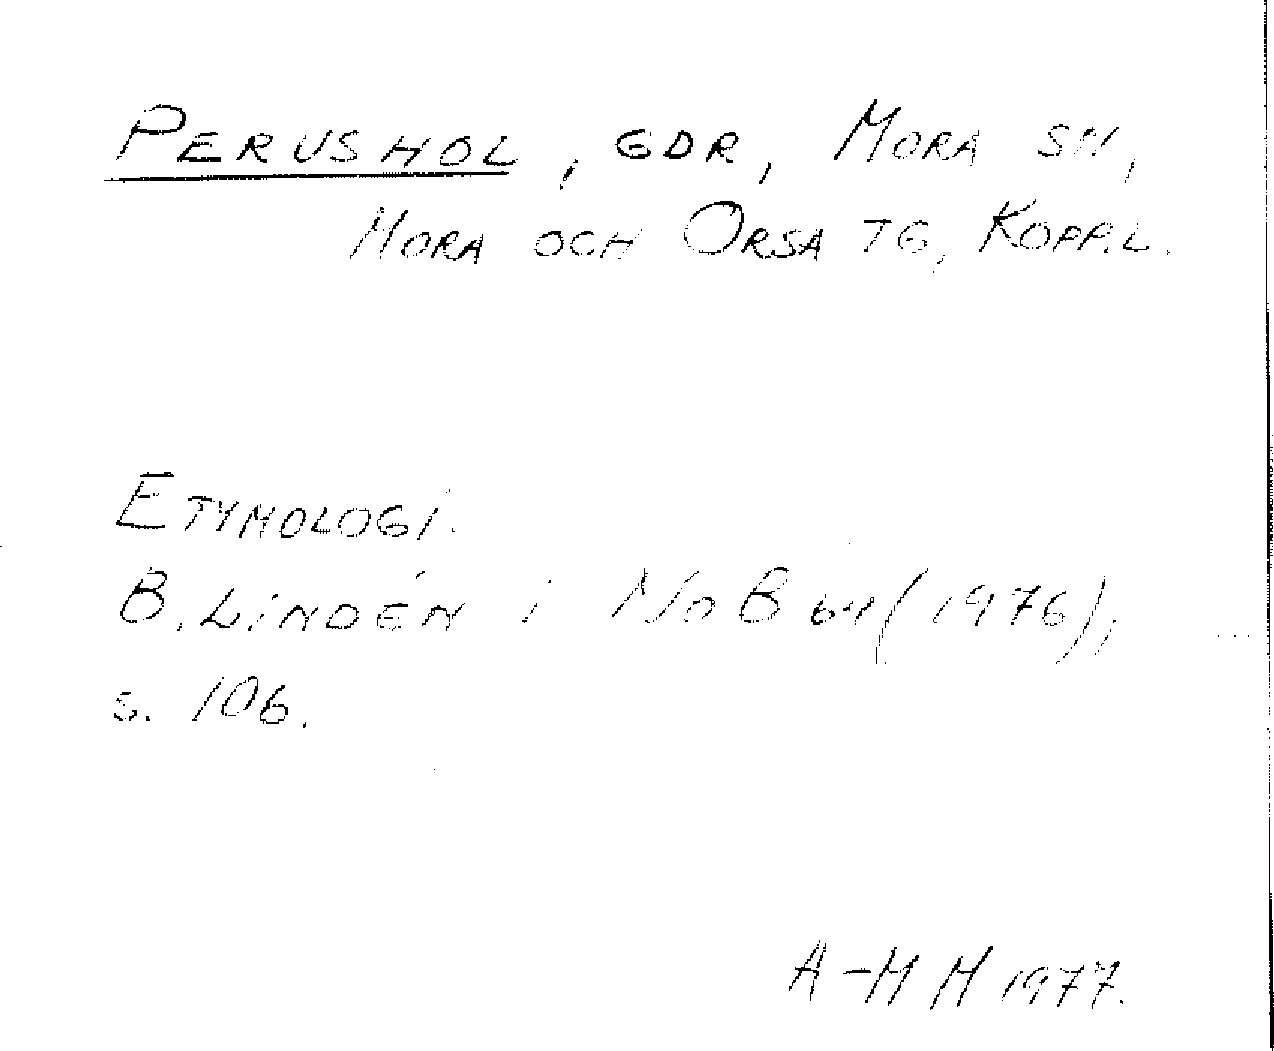 PERUSHOL, GDR, MORA SN,
MORA OCH ORSA TG, KOPP.L.
ETYMOLOGI.
B. LINDÉN i NoB 64 (1976),
s. 106.
A-M H 1977.